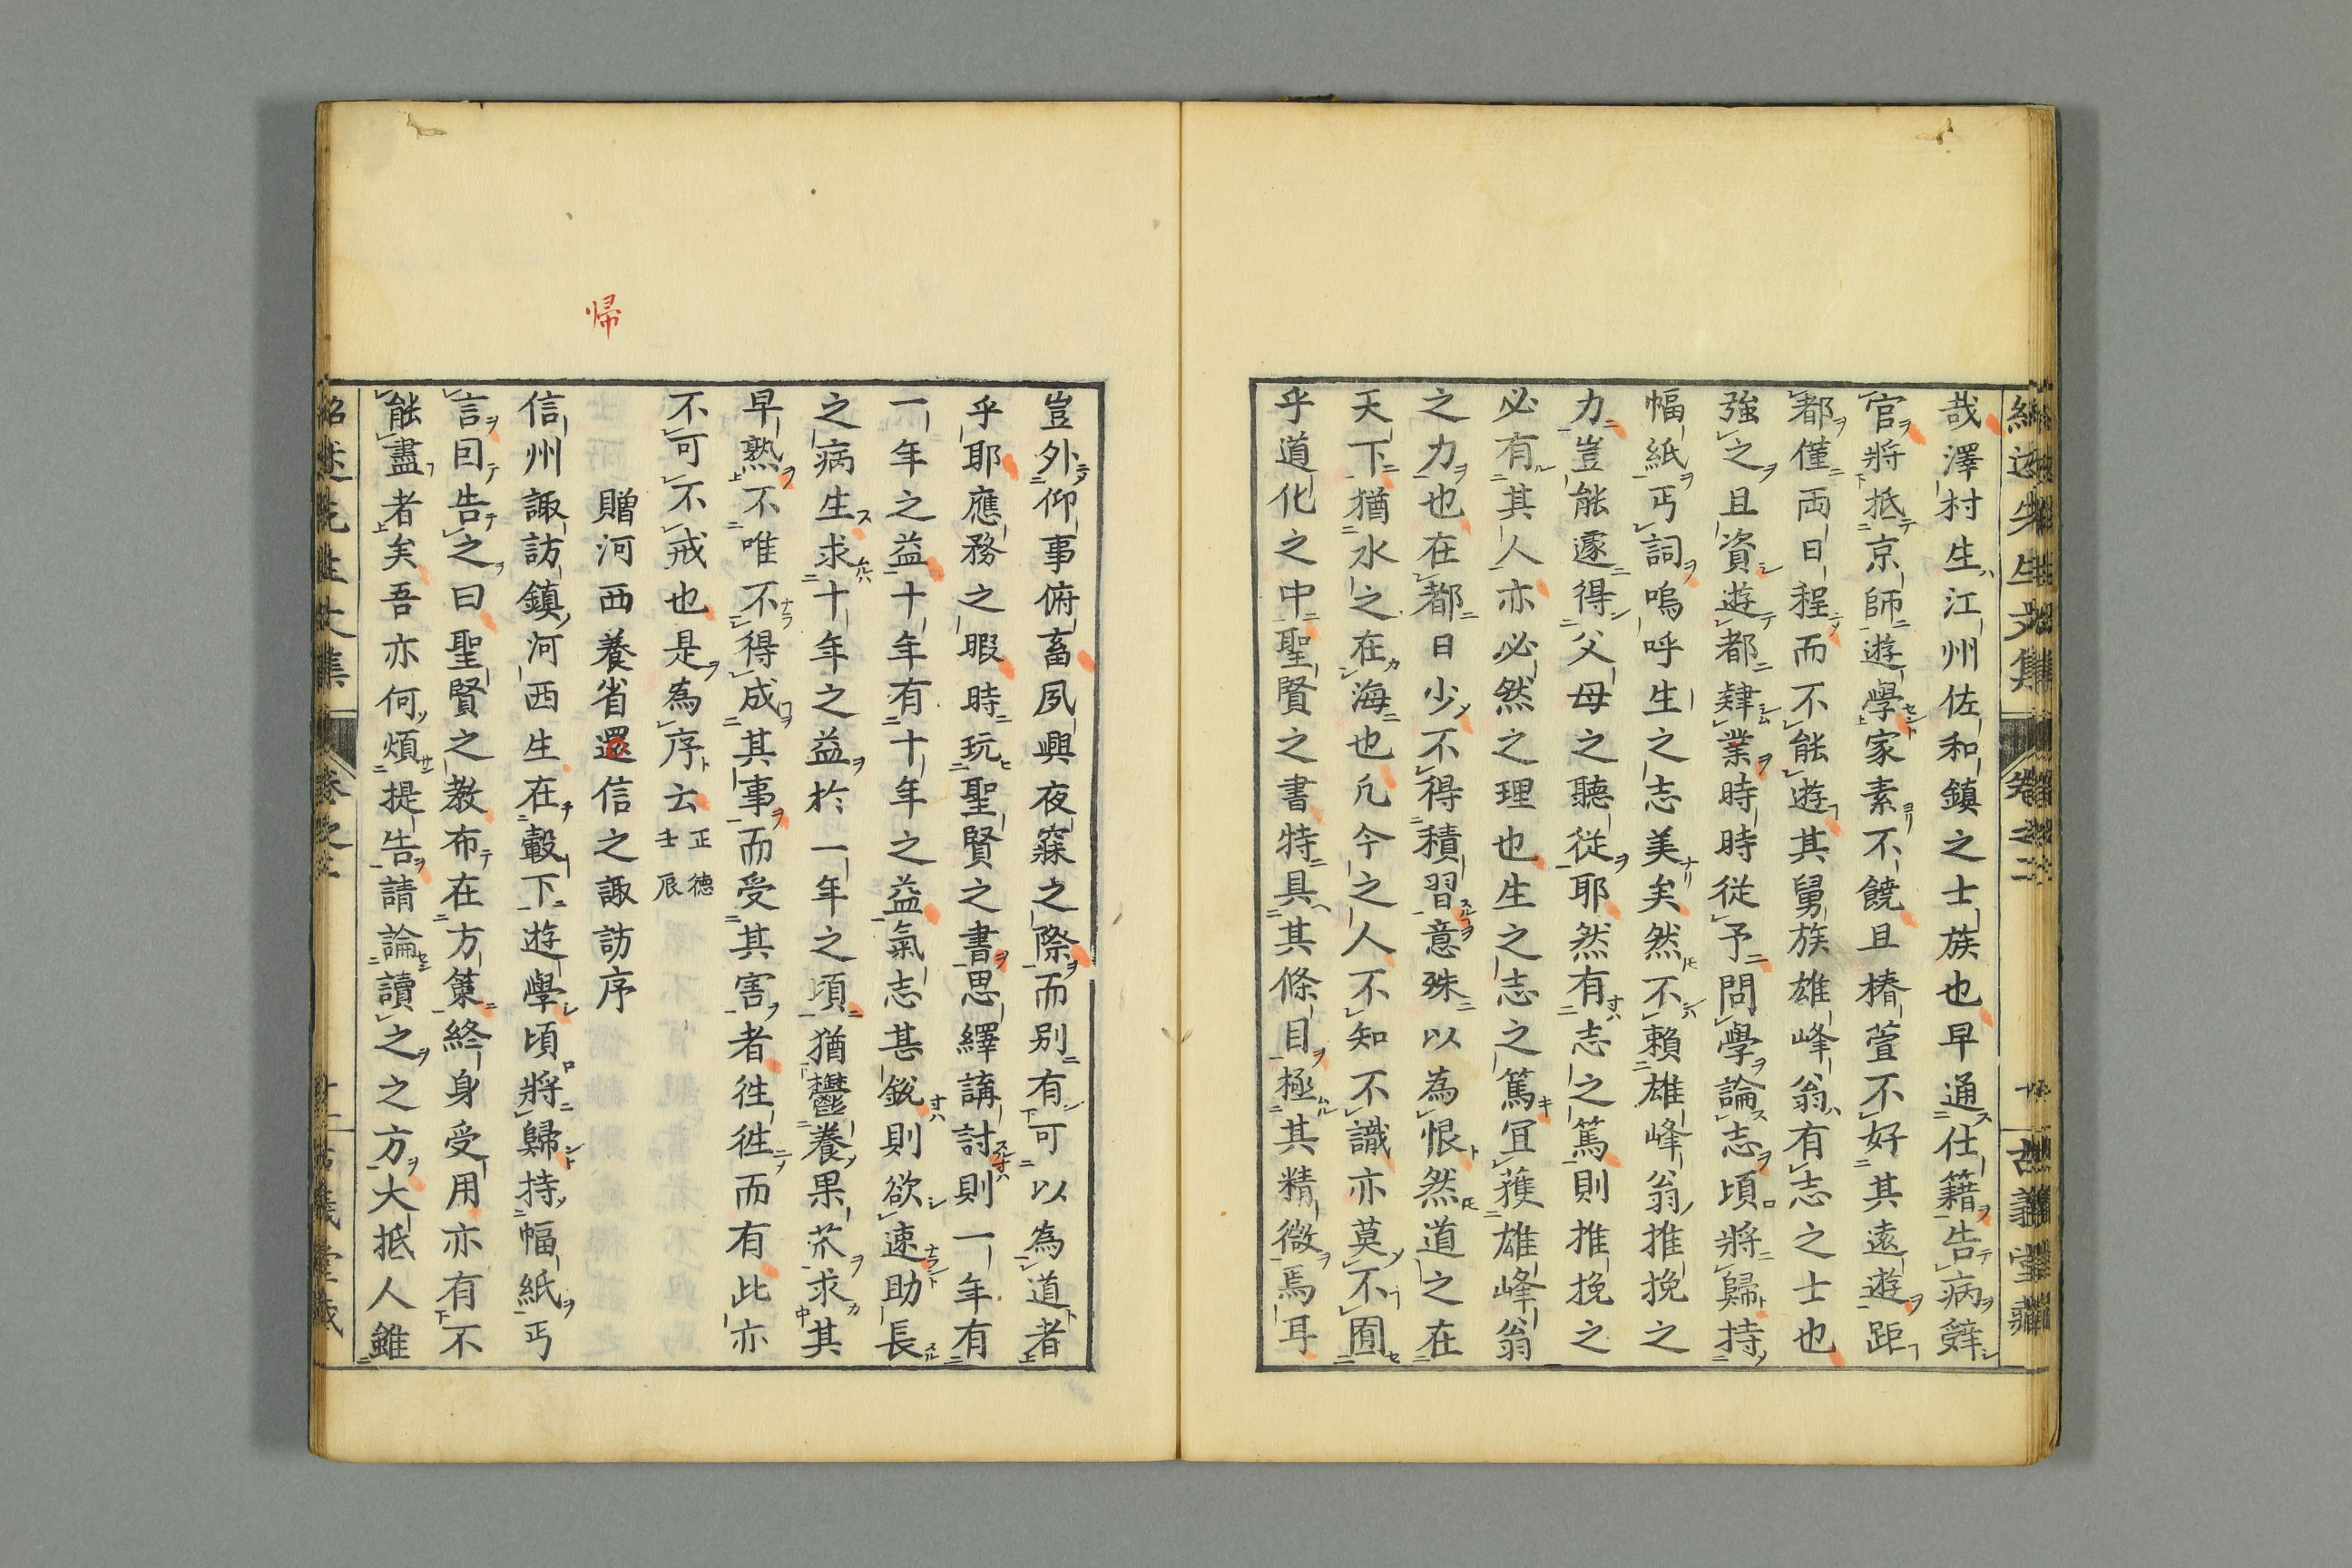 紹述先生文集
卷之二
古義堂藏
哉澤村生江州佐和鎮之士族也早通仕籍告病辭
官將抵京師遊學家素不饒且椿萱不好其遠遊距
都僅両日程而不能遊其舅族雄峰翁有志之士也
強之且資遊都肄業時時従予問學論志頃將歸持
幅紙丐詞嗚呼生之志美矣然不賴雄峰翁推挽之
力豈能遽得父母之聽従耶然有志之篤則推挽之
必有其人亦必然之理也生之志之篤冝獲雄峰翁
之力也在都日少不得積習意殊以為恨然道之在
天下猶水之在海也凡今之人不知不識亦莫不囿
乎道化之中聖賢之書特具其條目極其精微焉耳
豈外仰事俯畜夙興夜寐之際而别有可以為道者
乎耶應務之暇時玩聖賢之書思繹講討則一年有
一年之益十年有十年之益氣志甚銳則欲速助長
之病生求十年之益於一年之頃猶鬱養果蓏求其
早熟不唯不得成其事而受其害者徃徃而有此亦
不可不戒也是為序云正德
壬辰
帰
贈河西養省還信之諏訪序
信州諏訪鎮河西生在轂下遊學頃將歸持幅紙丐
言囙告之曰聖賢之教布在方策終身受用亦有不
能盡者矣吾亦何煩提告請論讀之之方大抵人雖
紹述先生文集
卷之二
十一
古義堂藏